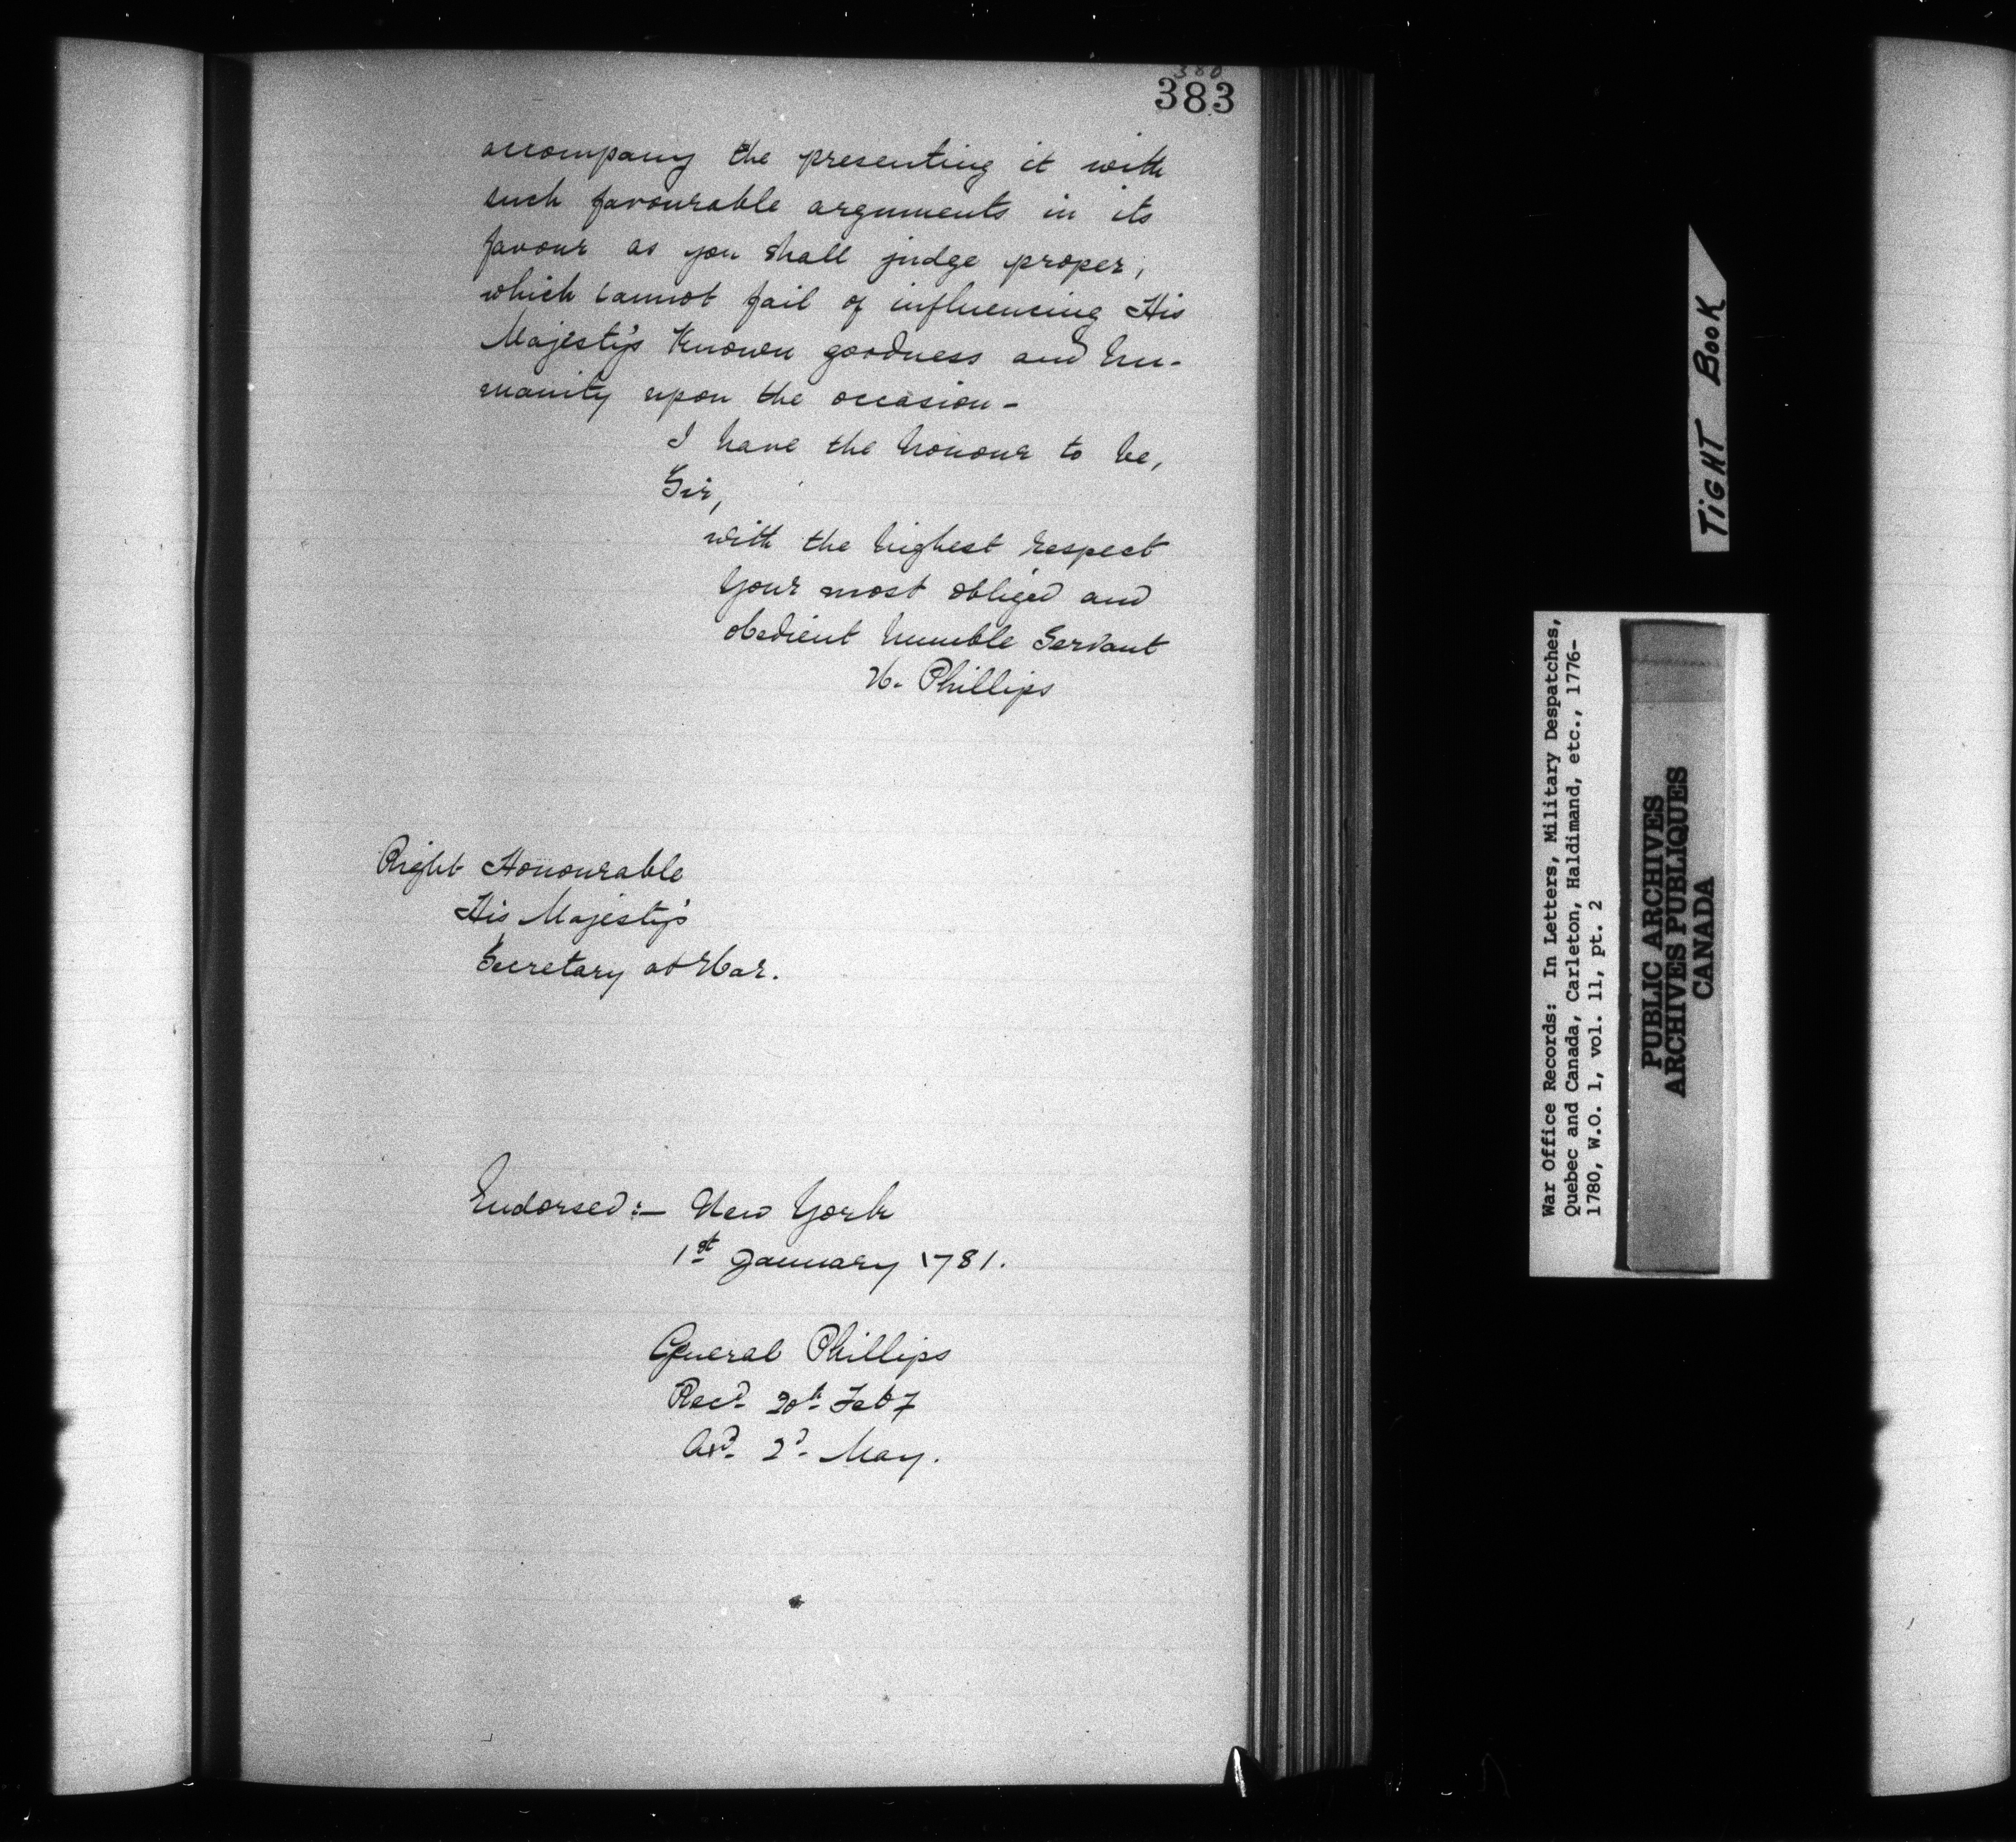 380
383
accompany the presenting it with
such favourable arguments in its
favour as you shall judge proper,
which cannot fail of influencing His
Majesty's Known goodness and hu-
manity upon the occasion -
I have the honour to be,
Sir,
with the highest respect
Your most obliged and
obedient humble Servant
W. Phillips
Right Honourable
His Majesty's
Secretary at War.
Endorsed:— New York
1st January 1781.
General Phillips
Recd. 20th Feby
Ad. 2d. May.
TiGHT BooK
War Office Records: In Letters, Military Despatches,
Quebec and Canada, Carleton, Haldimand, etc., 1776-
1780, W.O. 1, vol. 11, pt. 2
PUBLIC ARCHIVES
ARCHIVES PUBLIQUES
CANADA